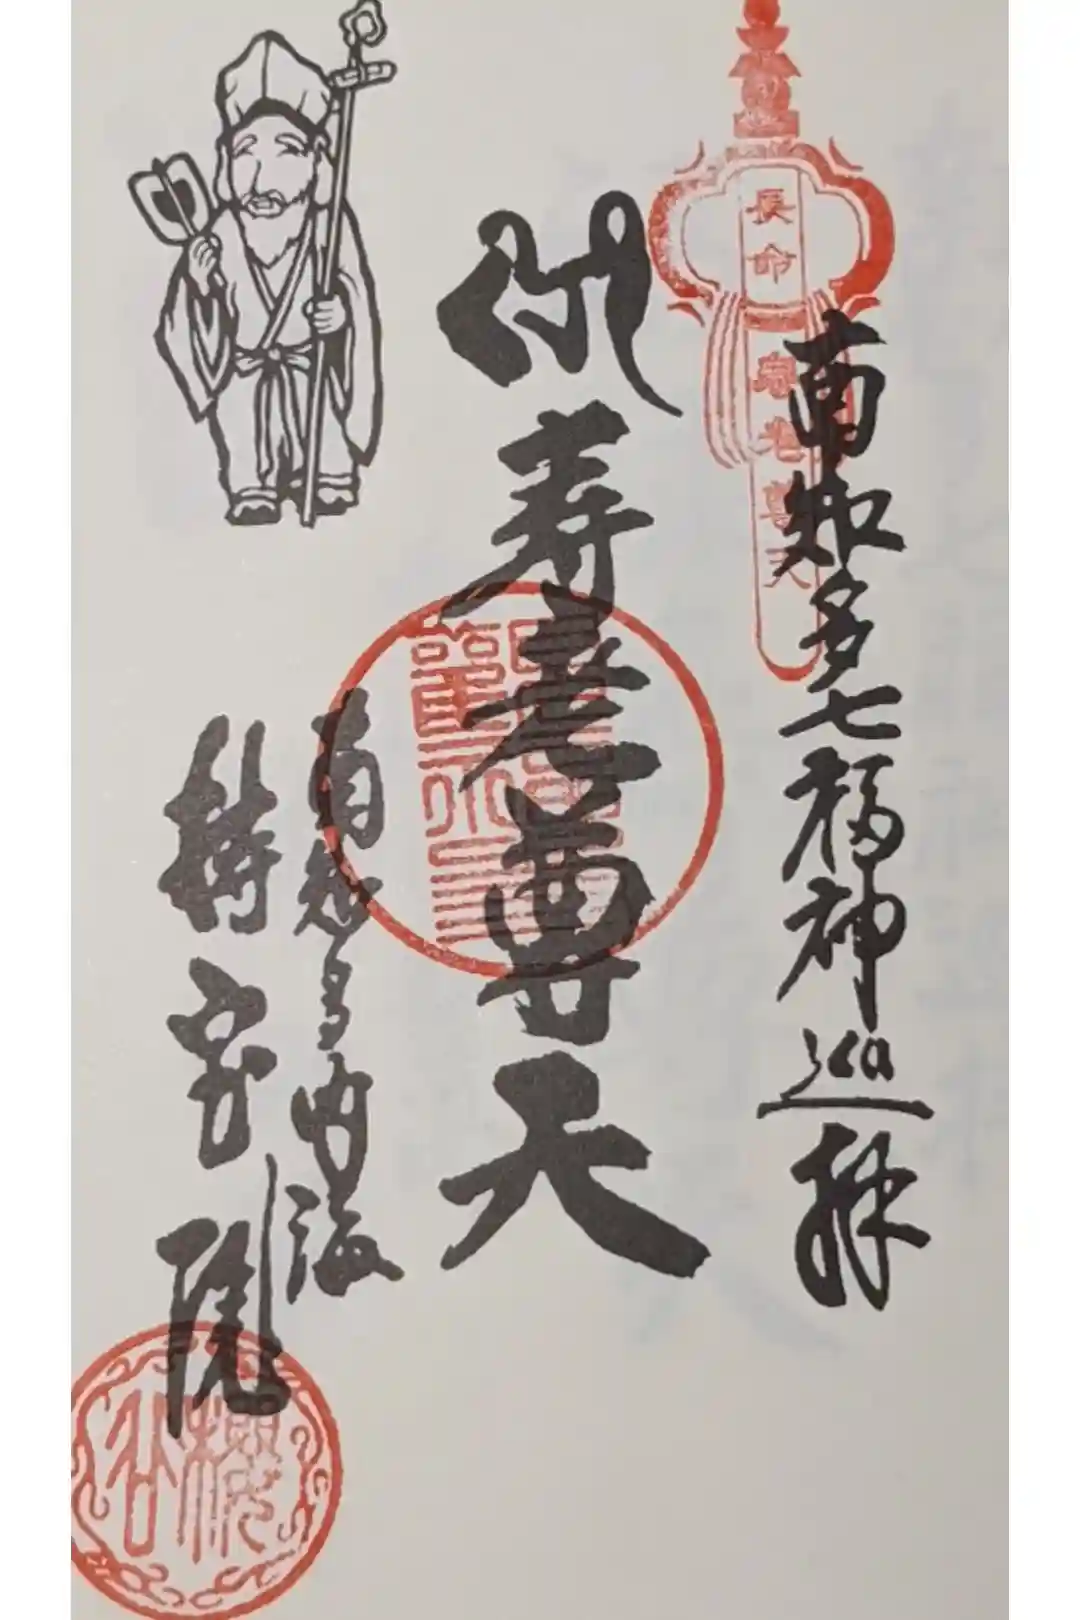 長命壽老尊天
南知多七福神巡拝
寿老尊天
南知多内海
持宝院